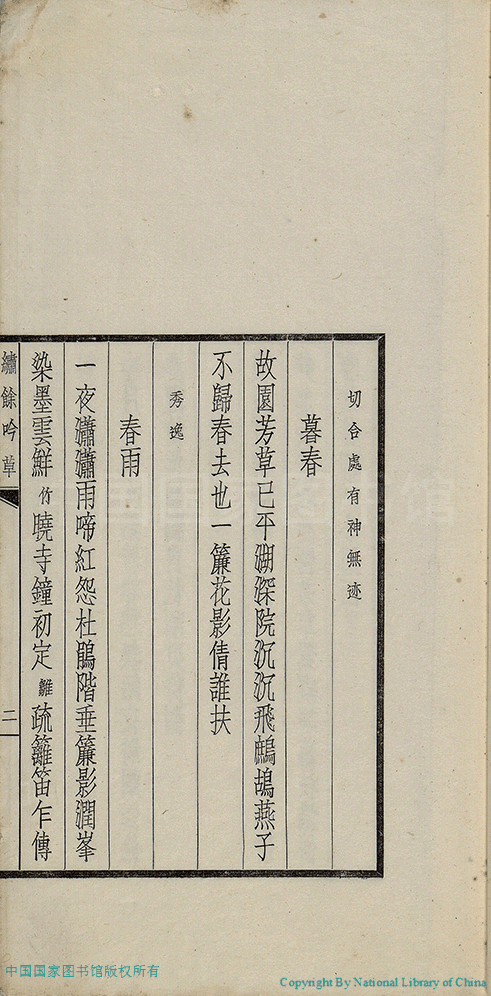 切合處有神無迹
暮春
故園芳草已平湖深院沉沉飛鷓鴣燕子
不歸春去也一簾花影倩誰扶
秀逸
春雨
一夜瀟瀟雨啼紅怨杜鵑階垂簾影潤峯
染墨雲鮮竹曉寺鐘初定雛疏籬笛乍傳
繡餘吟草
二
中国国家图书馆版权所有
Copyright By National Library of China